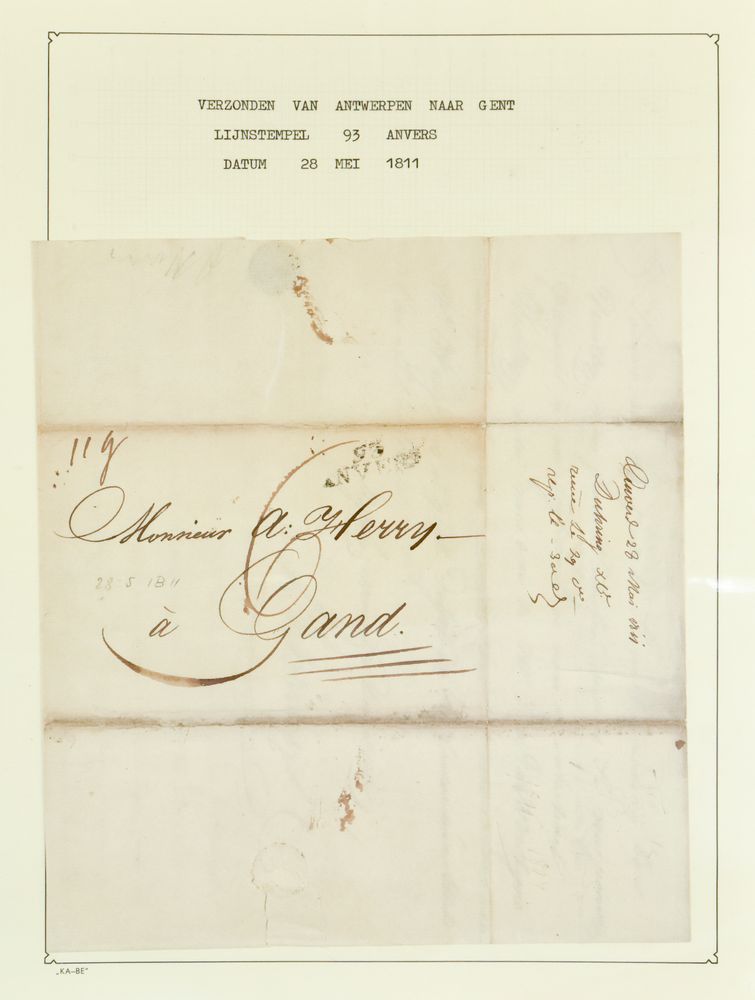 VERZONDEN VAN ANTWERPEN NAAR GENT
LIJNSTEMPEL 93 ANVERS
DATUM 28 MEI 1811
11 g
93
ANVERS
Monsieur A: Herry.
28-5 1811
à Gand.
Anvers 28 Mai 1811
„KA-BE"